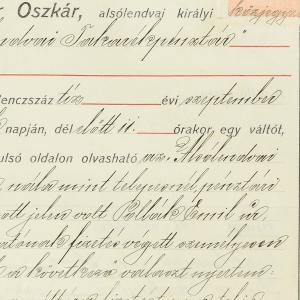 r Oszkár, alsólendvai királyi közjegyző
lendvai Takarékpénztár"
lenczszáz tíz évi szeptember
napján, dél előtt 11. órakor egy váltót,
ulsó oldalon olvasható az. Alsólendvai
nála mint telyesnél, pénztári
ott jelen volt Pollák Emil úr
fizetés végett személyesen
a következő választ nyertem: